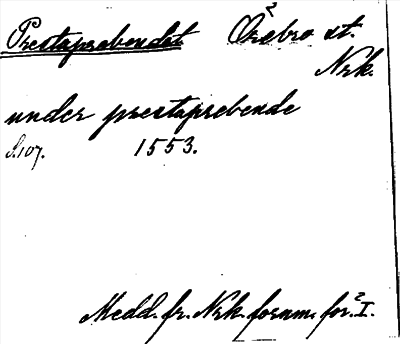 Prestaprebendet Örebro st.
Nrk.
under prestaprebende
S.107. 1553.
Medd. fr. Nrk. fornm. för. I.